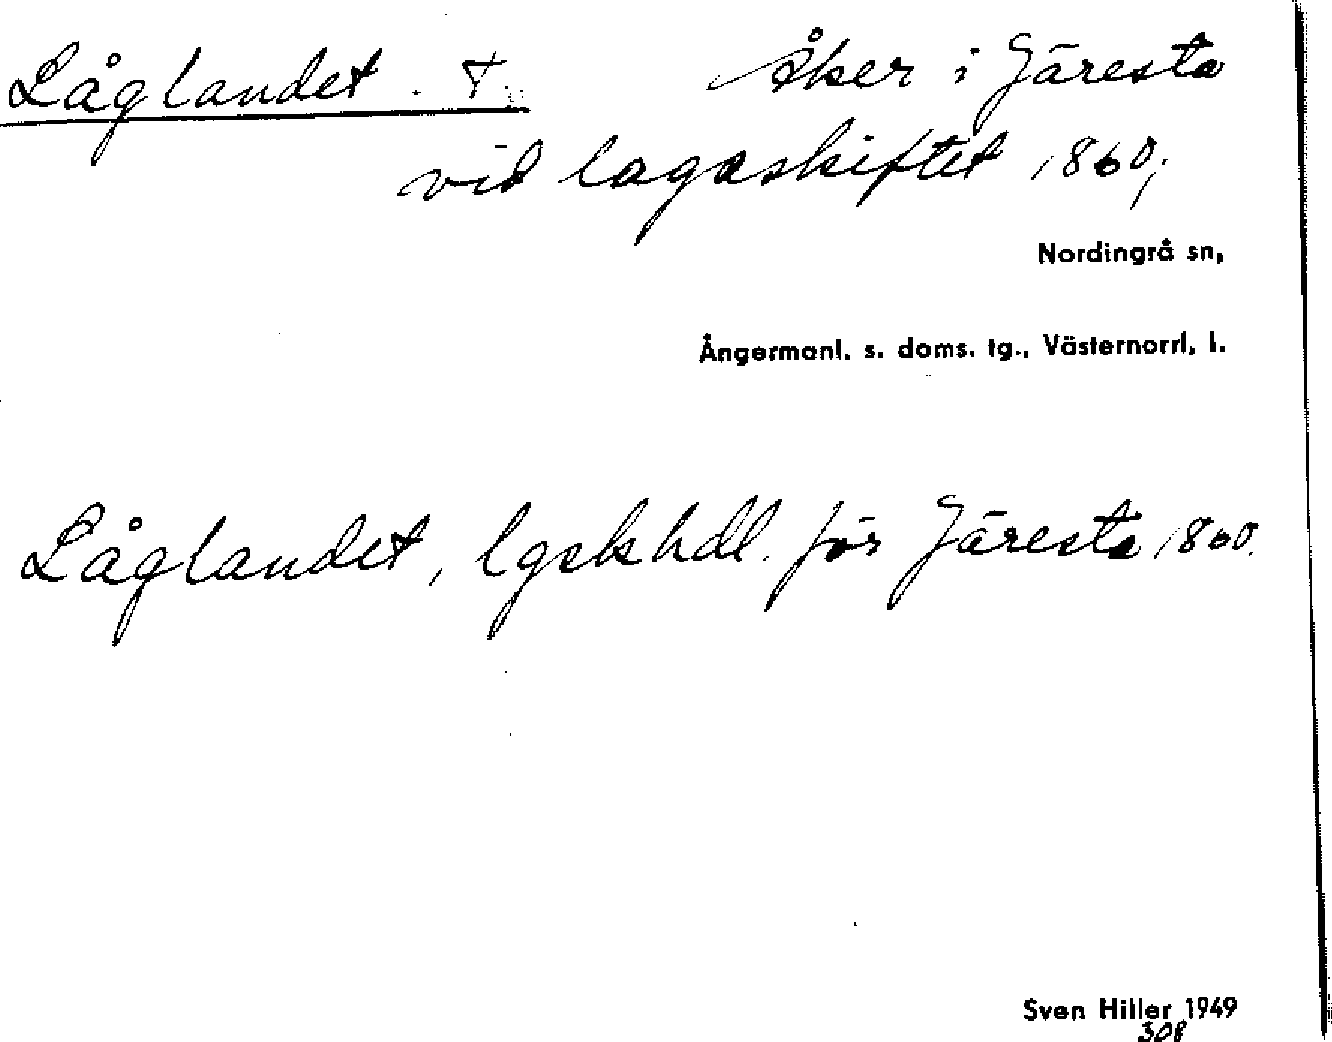 Låglandet. † Åker i Järesta
vid lagaskiftet 1860,
Nordingrå sn,
Ångermanl. s. doms. tg., Västernorrl. l.
Låglandet, lgskhdl. för Järesta 1860.
Sven Hiller 1949
308